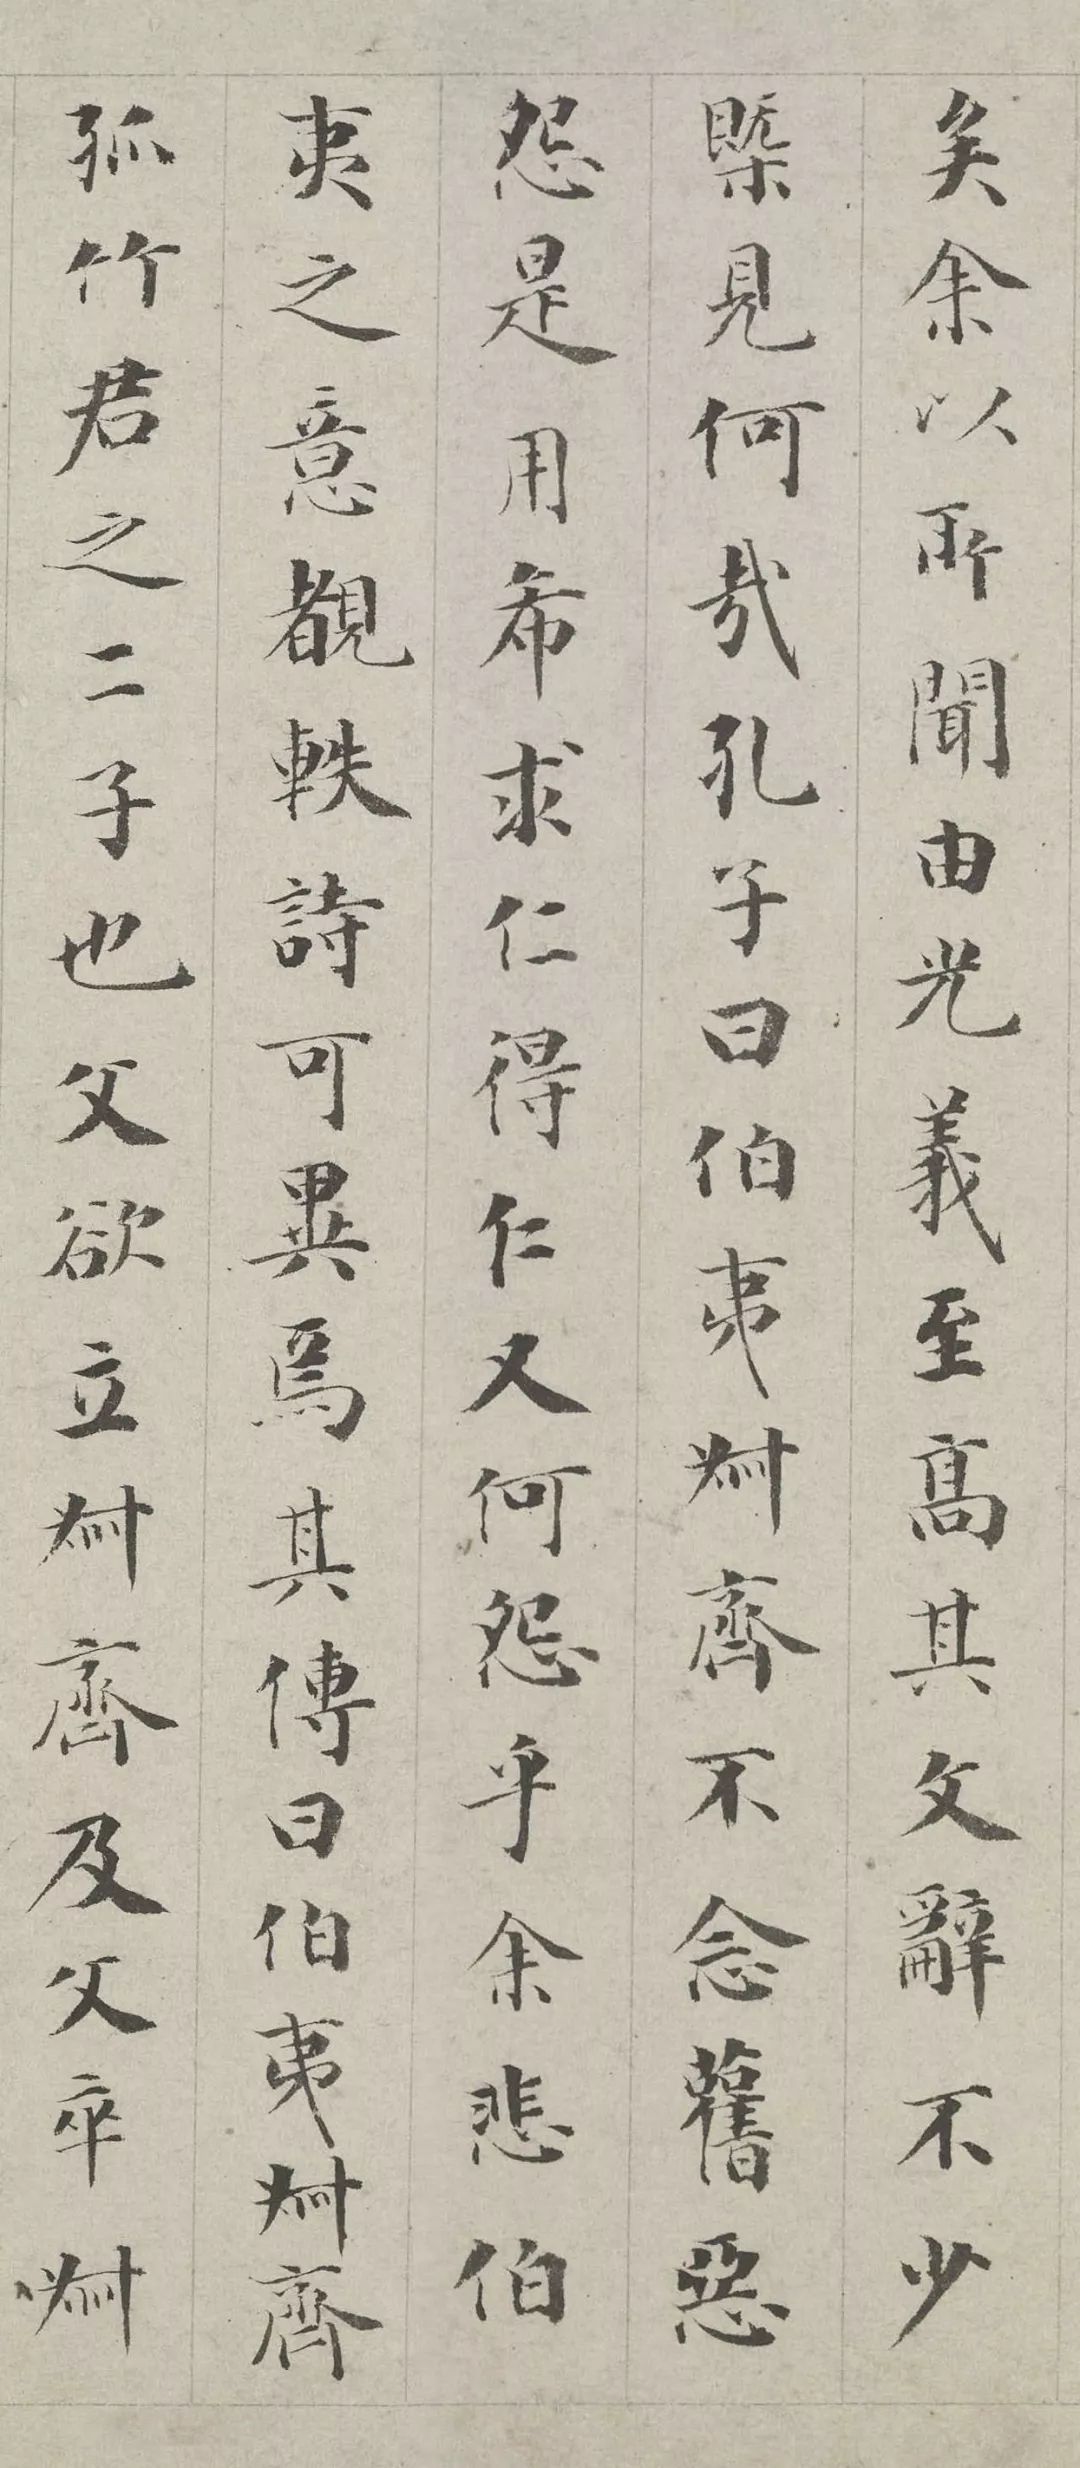 矣余以所聞由光義至高其文辭不少
槩見何哉孔子曰伯夷叔齊不念舊惡
怨是用希求仁得仁又何怨乎余悲伯
夷之意覩軼詩可異焉其傳曰伯夷叔齊
孤竹君之二子也父欲立叔齊及父卒叔